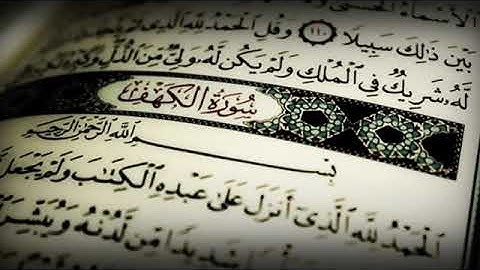 الأسماء الحسنى و
بين ذلك سبيلا ١١٠ وقل الحمد لله الذي
له شريك في الملك ولم يكن له ولي من الذل وكبره
سورة الكهف
بسم الله الرحمن الرحيم
الحمد لله الذي أنزل على عبده الكتاب ولم يجعل
شديدا من لدنه ويبشر